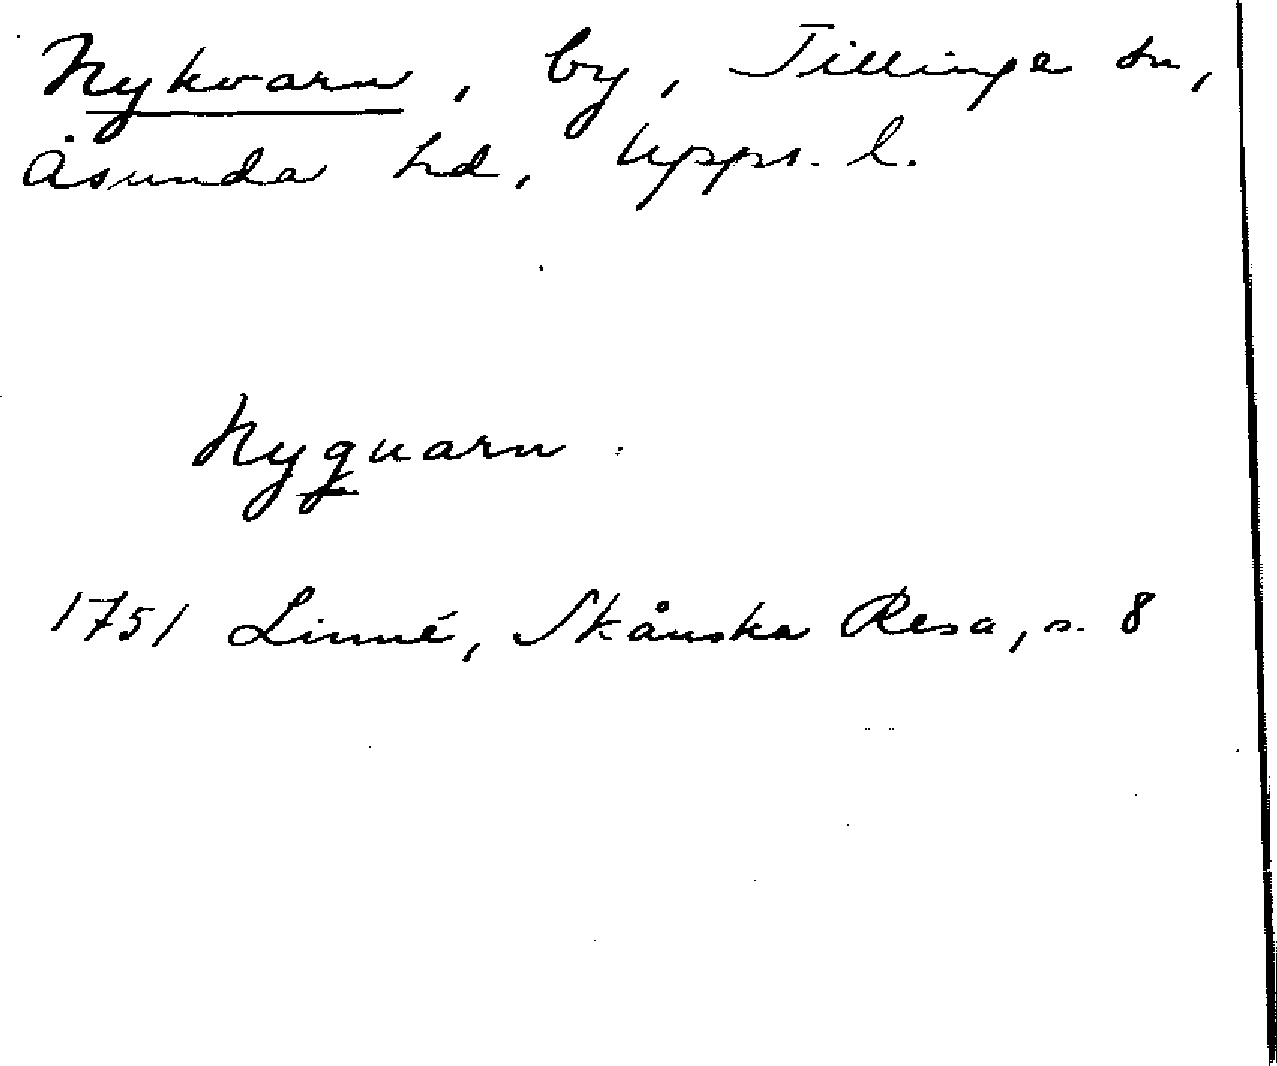 Nykvarn, by, Tillinge sn,
Åsunda hd, Upps. l.
Nyquarn.
1751 Linné, Skånska Resa, s. 8